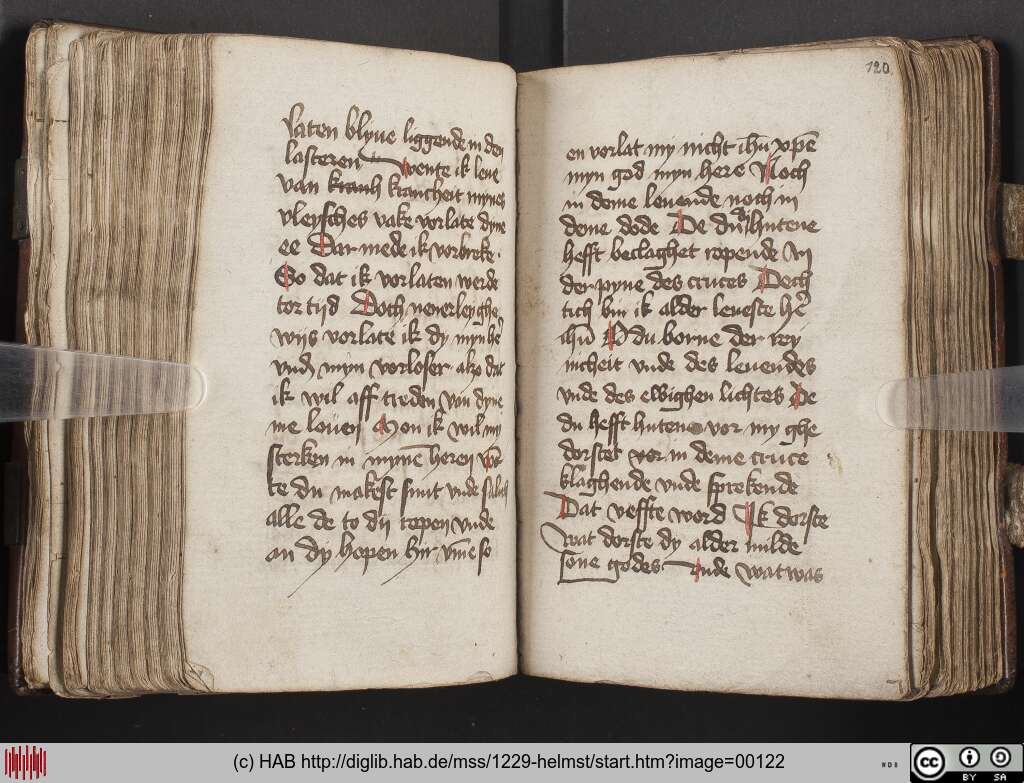 laten blyue liggende in den
lasteren Wente ik leue
van kranh krancheit mynes
vleysches vake vorlate dyne
ee Dar mede ik vorbreke.
So dat ik vorlaten werde
tor tijd Doch nenerleyghe
wijs vorlate ik dy myn he
vnde myn vorloser alzo dat
ik wil aff treden von dyne
me louen Men ik wil my
sterken in mynē heren
te du makest sunt vnde salich
alle de to dy ropen vnde
an dy hopen Hir vm̄e so
120
en vorlat my nicht ihū xpē
myn god myn here Noch
in deme leuende noch in
deme dode De du hutene
hefft beclaghet ropende in
der pyne des cruces Dech
tich bin ik alder leueste he
ihū O du borne der rey
nicheit vnde des leuendes
vnde des ewighen lichtes De
du hefft hutene vor my ghe
dorstet vor in deme cruce
klaghende vnde sprekende
Dat veffte word Ik dorste
wat dorste dy alder milde
sone godes vnde wat was
(c) HAB http://diglib.hab.de/mss/1229-helmst/start.htm?image=00122
WDB
CC BY SA